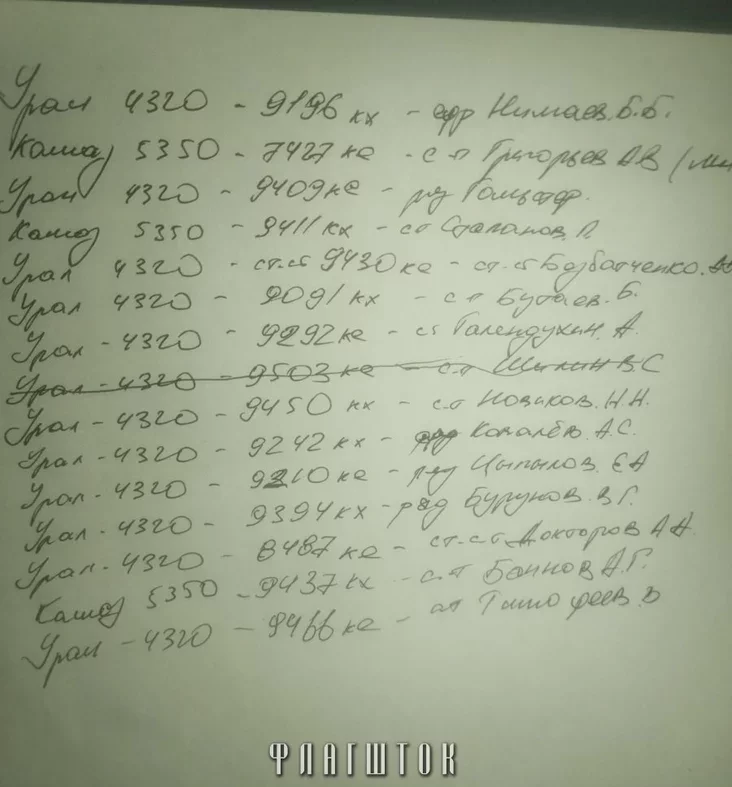 Урал 4320 - 9196 кх - Нимаев. Б.Б.
Камаз 5350 - 7427 ке - с-т Григорьев А.В (ми
Урал 4320 - 9409 ке - ряд
Камаз 5350 - 9411 кх - ст Степанов. П.
Урал 4320 - ст.ст 9430 ке - ст. ст Безбатченко.
Урал 4320 - 9091 кх - с-т Бутаев. Б.
Урал - 4320 - 9292 ке - ст Галендухин. А.
Урал - 4320 - 9503 ке - с-т Шилин В С
Урал - 4320 - 9450 кх - с.т Новиков. Н.Н.
Урал - 4320 - 9242 кх - ряд Ковалёв. А.С.
Урал - 4320 - 9210 ке - ряд Цыпылов. Е А
Урал - 4320 - 9394 кх - ряд Бурунов. В Г.
Урал - 4320 - 8487 ке - ст.с-т Докторов А А.
Камаз 5350 - 9437 кх - с-т Баннов А.Г.
Урал - 4320 - 9466 ке - Тимофеев. В
ФЛАГШТОК